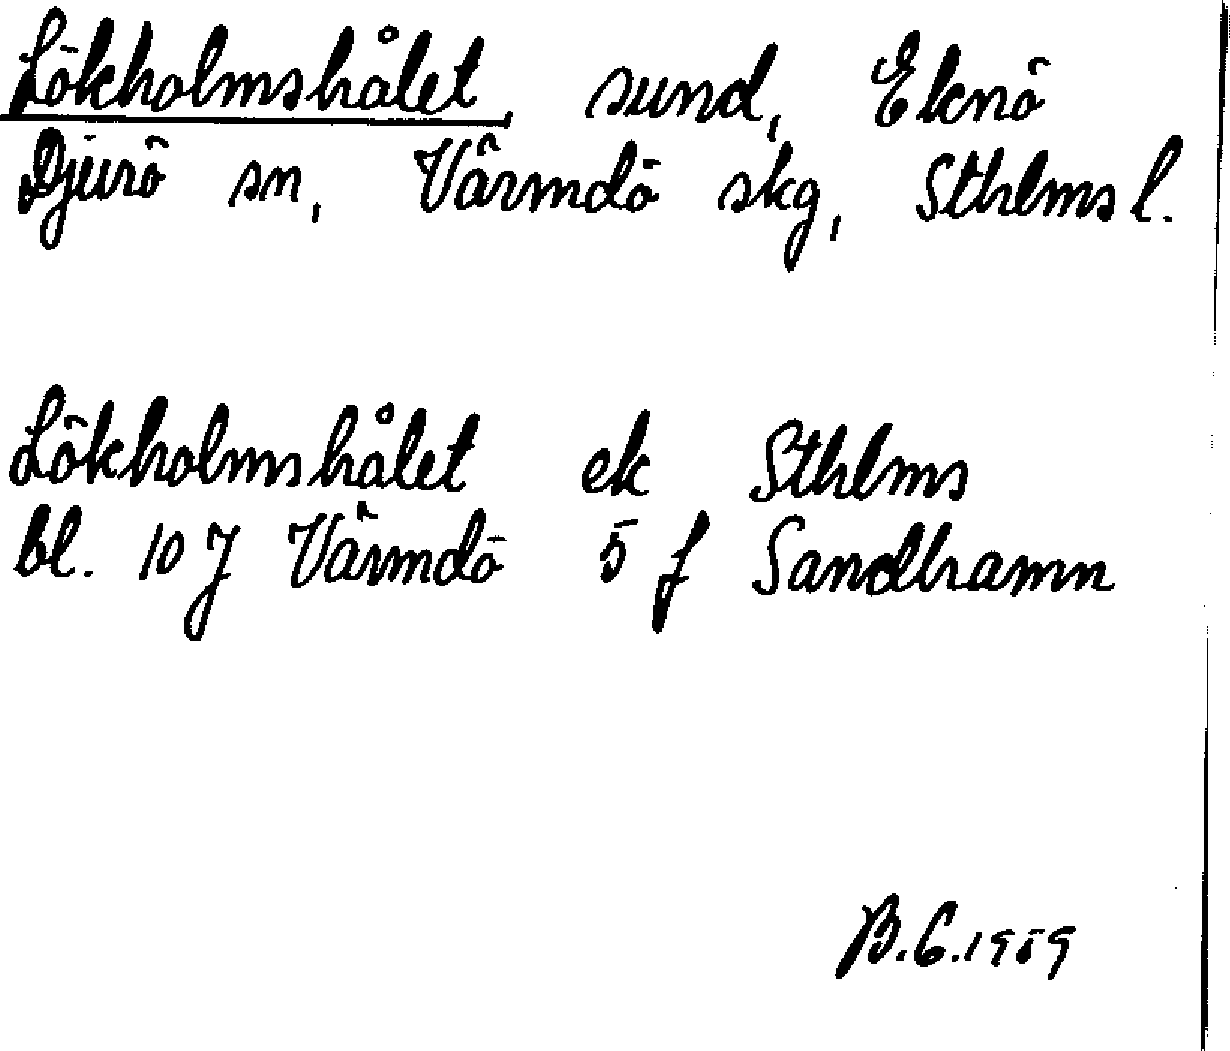 Lökholmshålet, sund, Eknö
Djurö sn, Värmdö skg, Sthlms l.
Lökholmshålet ek Sthlms
bl. 10 J Värmdö 5 f Sandhamn
B.G.1959